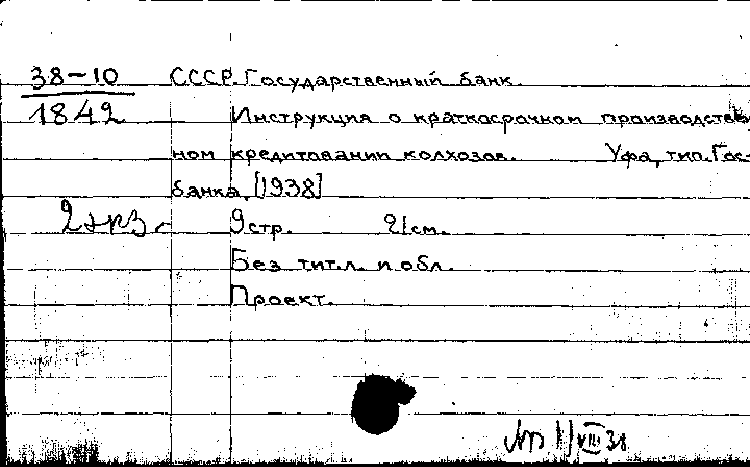 38-10 СССР. Государственный банк.
1842 Инструкция о краткосрочном производствен
ном кредитовании колхозов. Уфа, тип. Гос-
банка, [1938]
2 экз. 9 стр. 21 см.
Без тит. л. и обл.
Проект.
VIII 38